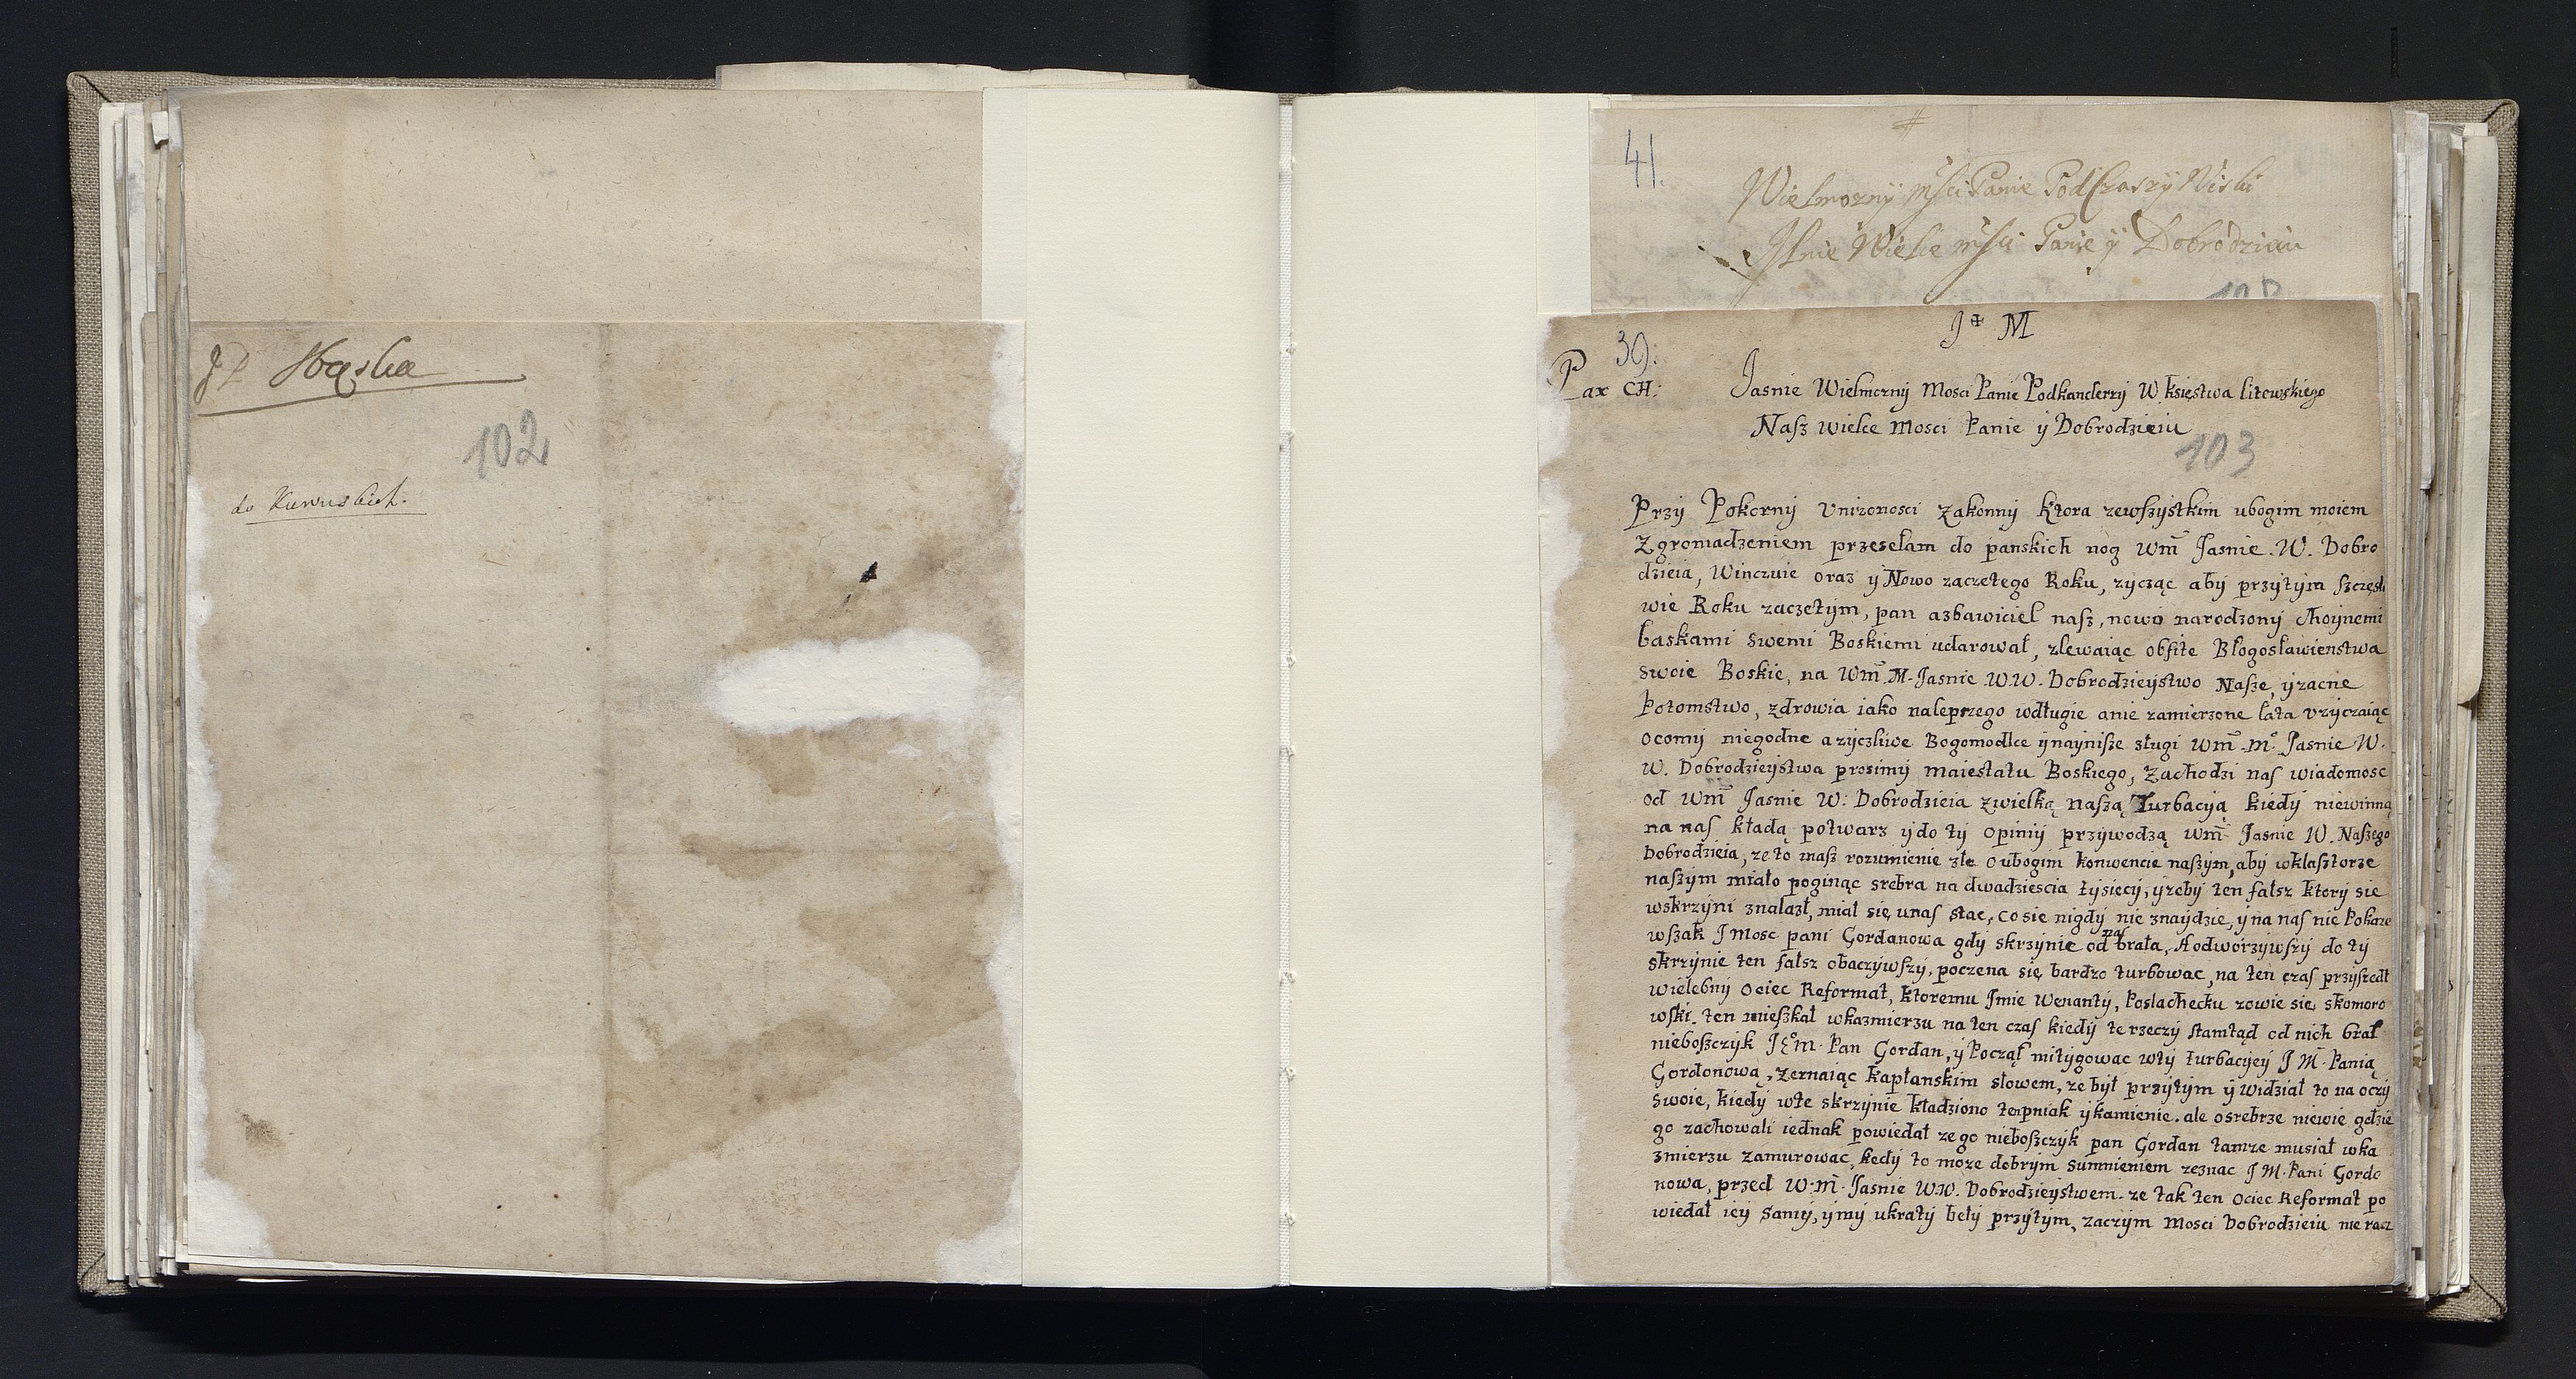 102
do Kurruskich.
41.
Wielmozny Msci Panie PodCzaszy
Wielce Msci Panie y Dobrodzieiu
J + M
39.
Pax CH:
Jasnie Wielmozny Mosci Panie Podkanclerzy W. Księstwa litewskiego
Nasz wielce Mosci Panie y Dobrodzieiu
103
Przy Pokorny Unizonosci Zakonny Ktora zewszystkim ubogim moiem
Zgromadzeniem przesełam do panskich nog Wm̃ Jasnie. W. Dobro
dzieia, Winczuie oraz y Nowo zaczetego Roku, zycząc aby przytym szczęsli
wie Roku zaczetym, pan azbawiciel nasz, nowo narodzony choynemi
łaskami swemi Boskiemi udarował, zlewaiąc obfite Błogosławienstwa
swoie Boskie, na Wm̃. M. Jasnie W.W. Dobrodzieystwo Nasze, y zacne
Potomstwo, zdrowia iako nalepszego wdługie anie zamierzone lata vzyczaiąc
ocomy niegodne a zyczliwe Bogomodlce y naynisze sługi Wm̃. mº Jasnie W.
W. Dobrodzieystwa prosimy maiestatu Boskiego, Zachodzi nas wiadomosc
od Wm̃ Jasnie W: Dobrodzieia zwielką naszą Turbacyą kiedy niewinną
na nas kładą potwarz y do ty opiniy przywodzą Wm̃ Jasnie W. Naszego
Dobrodzieia, ze to masz rozumienie złe o ubogim konwencie naszym, aby wklasztorze
naszym miało poginąc srebra na dwadziescia tysięcy, y zeby ten fałsz ktory sie
wskrzyni znalazł, miał się unas stac, co sie nigdy nie znaydzie, y na nas nie Pokaze
wszak J Mosc pani Gordanowa gdy skrzynie od nas brała, A odworzywszy do ty
skrzynie ten fałsz obaczywszy, poczena się bardzo turbowac, na ten czas przyszedł
wielebny ociec Reformat, ktoremu Jmie Wenanty, Poslachecku zowie się Skomoro
wski. ten mieszkał wkazmierzu na ten czas kiedy te rzeczy stamtąd od nich brał
nieboszczyk Jeºm. Pan Gordan, y Począł mitygowac wty turbacyey J M. Panią
Gordonową, zeznaiąc kapłanskim słowem, ze był przytym y widział to na oczy
swoie, kiedy wte skrzynie kładziono terpniak y kamienie. ale osrebrze niewie gdzie
go zachowali iednak powiedał ze go nieboszczyk pan Gordan tamze musiał wka
zmierzu zamurowac, kedy to moze dobrym sumnieniem zeznac J M. Pani Gordo
nowa, przed W.m̃. Jasnie W.W. Dobrodzieystwem. ze tak ten ociec Reformat po
wiedał iey samy, y my ukraty beły przytym, zaczym Mosci Dobrodzieiu nie racz